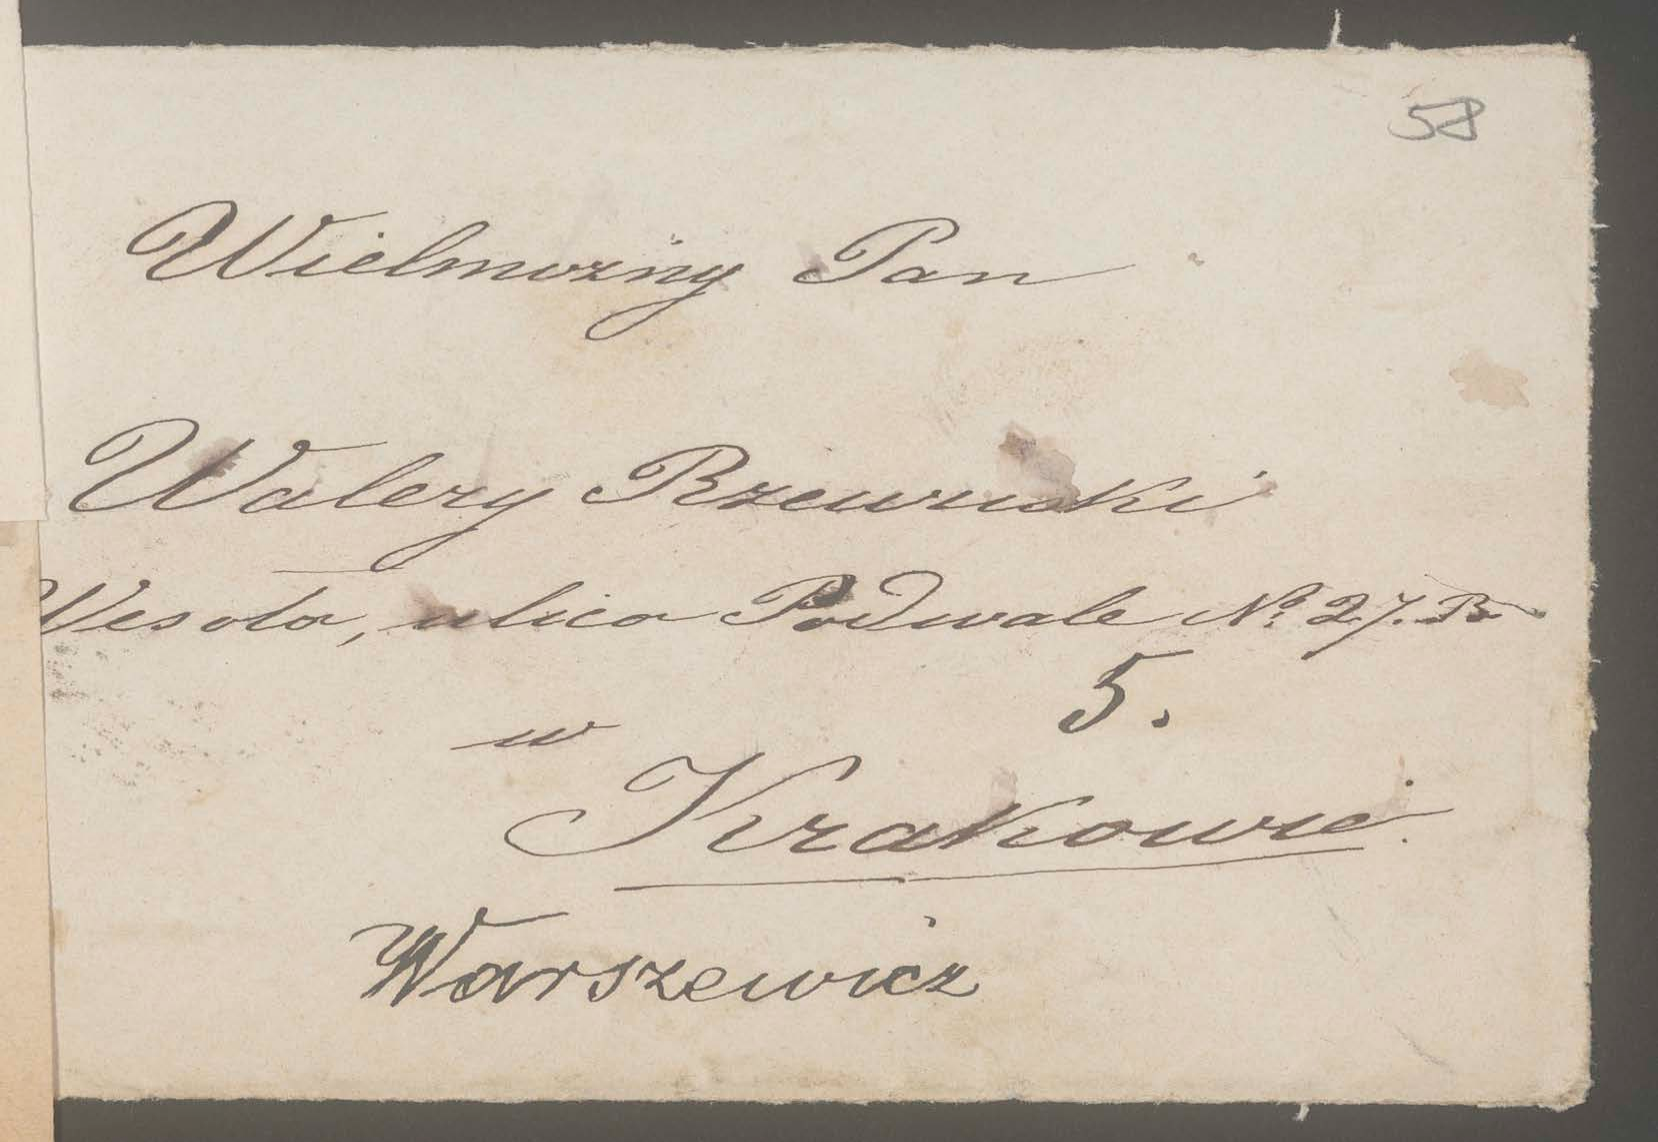 58
Wielmożny Pan
Walery Rzewuski
Wesoła, ulica Podwale No. 27. B
5.
w
Krakowie.
Warszewicz